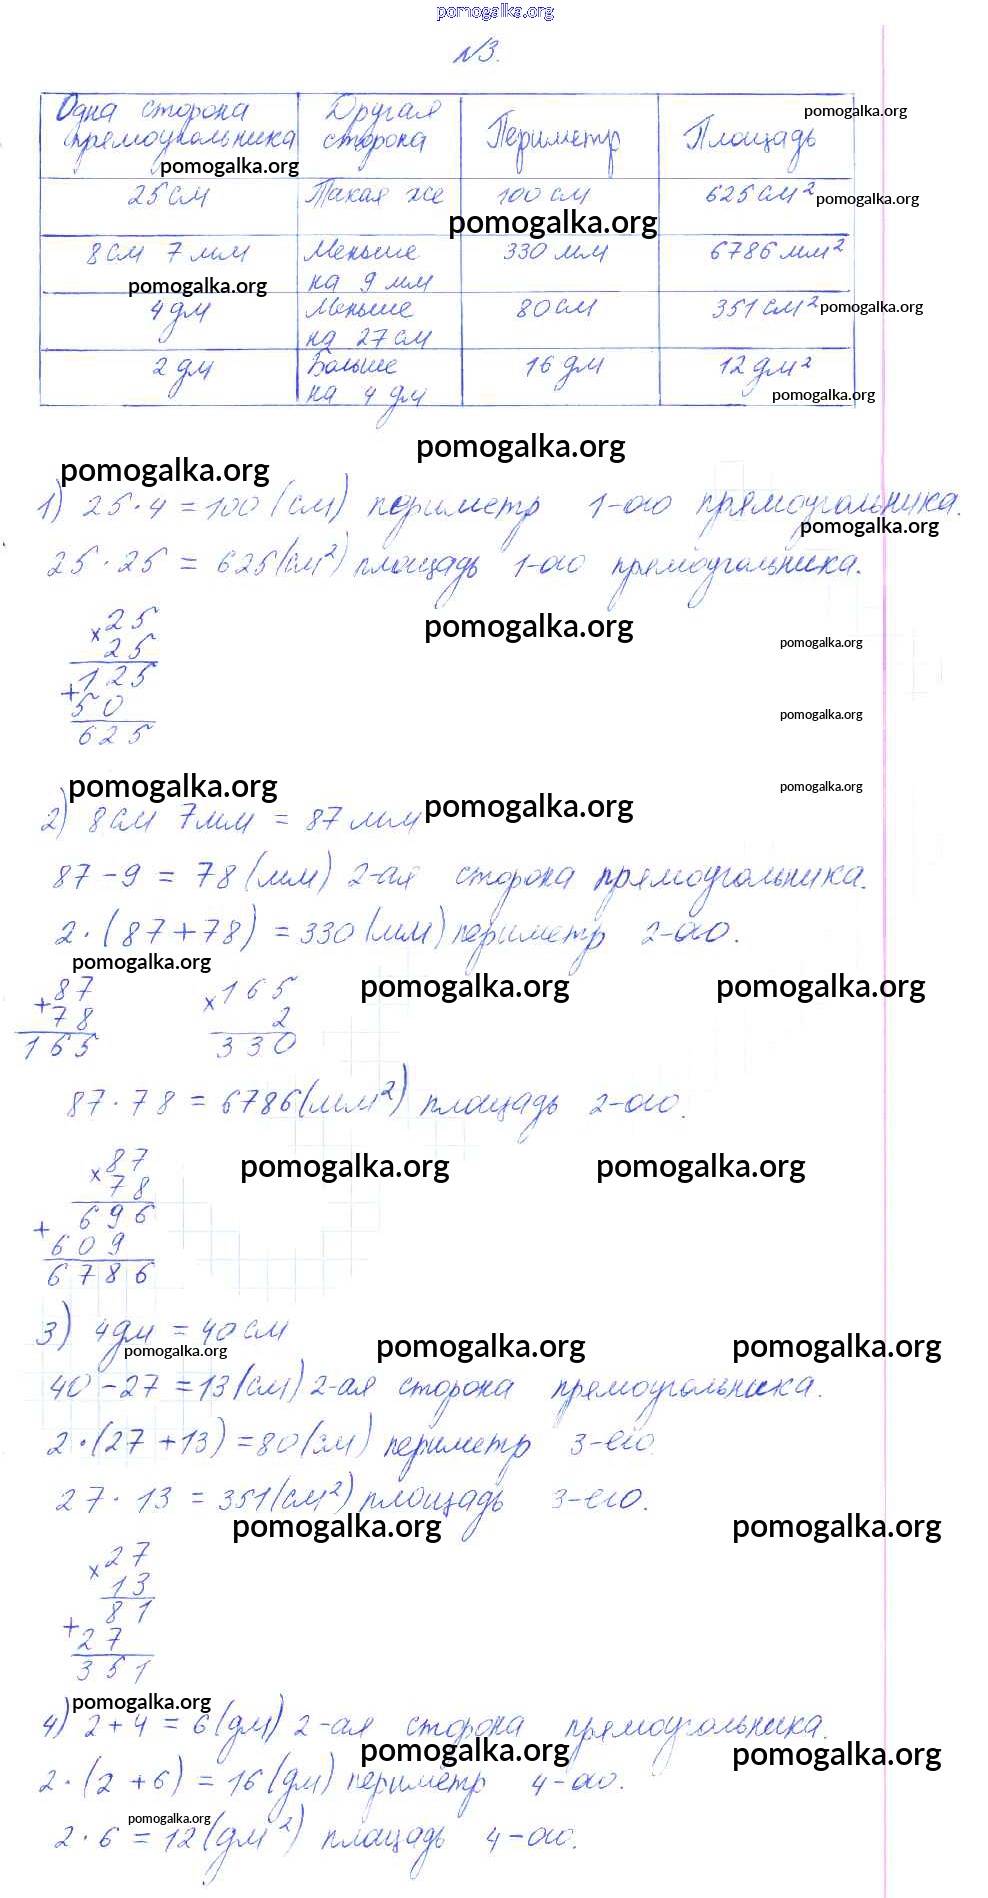 pomogalka.org
№3.
Одна сторона прямоугольника | Другая сторона | Периметр | Площадь
pomogalka.org
pomogalka.org
25 см | Такая же | 100 см | 625 см²
pomogalka.org
pomogalka.org
8 см 7 мм | Меньше на 9 мм | 330 мм | 6786 мм²
pomogalka.org
4 дм | Меньше на 27 см | 80 см | 351 см²
pomogalka.org
2 дм | Больше на 4 дм | 16 дм | 12 дм²
pomogalka.org
pomogalka.org
pomogalka.org
1) 25 · 4 = 100 (см) периметр 1-ого прямоугольника.
pomogalka.org
25 · 25 = 625 (см²) площадь 1-ого прямоугольника.
× 25
25
pomogalka.org
pomogalka.org
125
+ 50
625
pomogalka.org
pomogalka.org
pomogalka.org
pomogalka.org
2) 8 см 7 мм = 87 мм
87 - 9 = 78 (мм) 2-ая сторона прямоугольника.
2 · (87 + 78) = 330 (мм) периметр 2-ого.
pomogalka.org
pomogalka.org
pomogalka.org
+ 87 × 165
78 2
165 330
87 · 78 = 6786 (мм²) площадь 2-ого.
× 87
78
pomogalka.org
pomogalka.org
696
+ 609
6786
3) 4 дм = 40 см
pomogalka.org
pomogalka.org
pomogalka.org
40 - 27 = 13 (см) 2-ая сторона прямоугольника.
2 · (27 + 13) = 80 (см) периметр 3-его
27 · 13 = 351 (см²) площадь 3-его.
pomogalka.org
pomogalka.org
× 27
13
81
+ 27
351
pomogalka.org
4) 2 + 4 = 6 (дм) 2-ая сторона прямоугольника.
pomogalka.org
pomogalka.org
2 · (2 + 6) = 16 (дм) периметр 4-ого.
pomogalka.org
2 · 6 = 12 (дм²) площадь 4-ого.